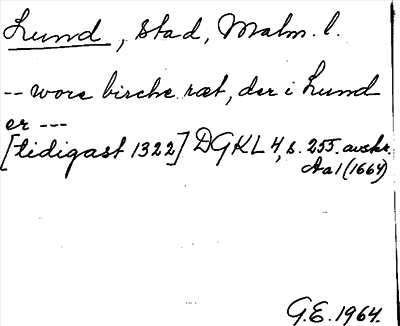 Lund, stad, Malm. l.
-- wore birche ræt, der i Lund
er ---
[tidigast 1322] DGKL 4, s. 255. avskr.
Aa1 (1664)
G.E. 1964.